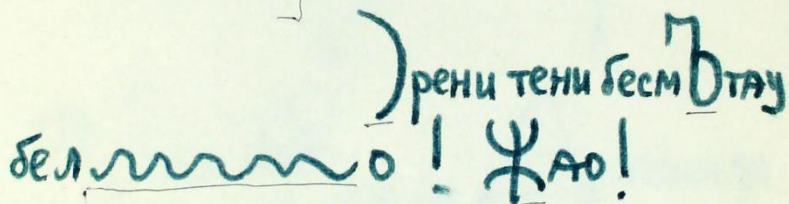 )рени тени бесмЪтау
бел~~~~о! Жао!